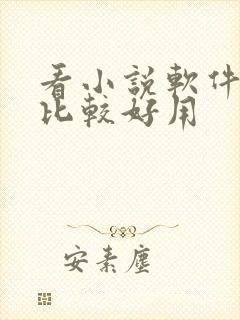 看小説軟件
比較好用
安素塵